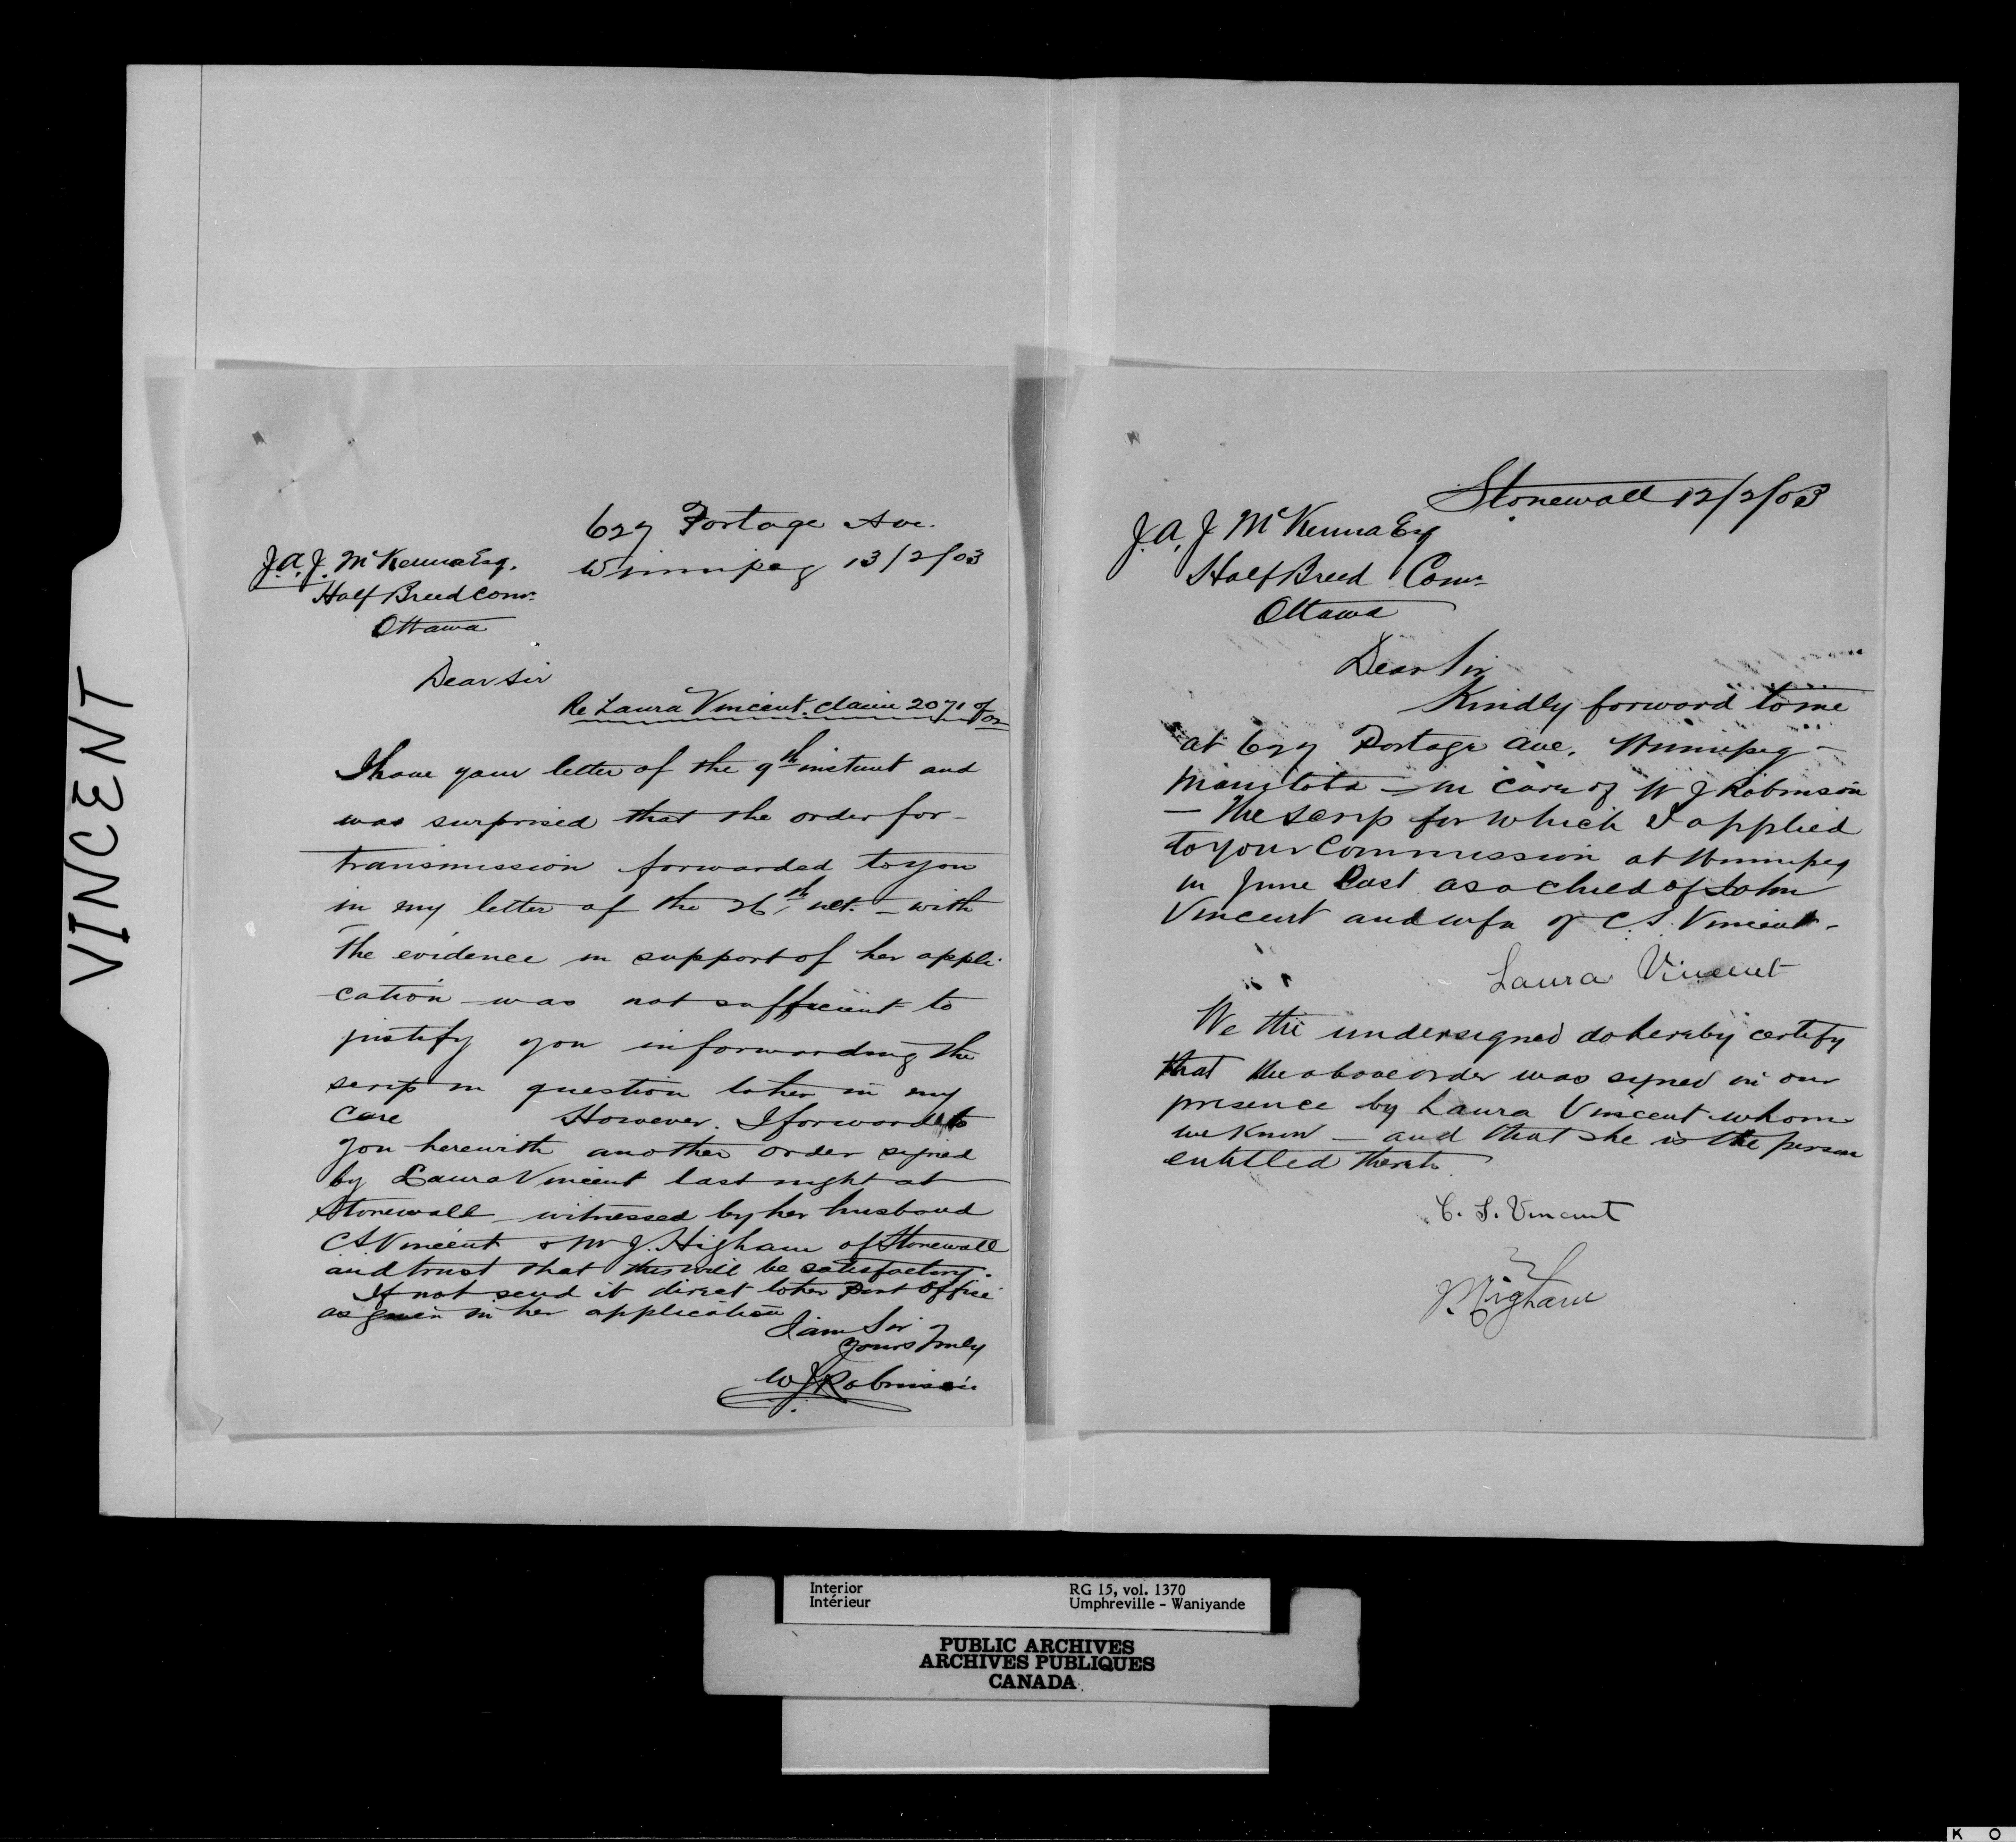 VINCENT
629 Portage Ave.
Winnipeg 13/2/03
J.A.J. McKenna Esq.
Half Breed Comr.
Ottawa
Dear Sir
Re Laura Vincent. claim 2071 of 02
I have your letter of the 9th instant and
was surprised that the order for-
transmission forwarded to you
in my letter of the 26th ult. - with
the evidence in support of her appli-
cation - was not sufficient to
justify you in forwarding the
scrip in question to her in my
care However. I forward to
you herewith another order signed
by Laura Vincent last night at
Stonewall - witnessed by her husband
C S Vincent & W J. Higham of Stonewall
and trust that this will be satisfactory.
If not send it direct to her Post Office
as given in her application
I am Sir
Yours Truly
W J Robinson
Stonewall 12/2/03
J.A.J McKenna Esq
Half Breed Comr
Ottawa
Dear Sir
Kindly forward to me
at 629 Portage Ave. Winnipeg -
Manitoba - in care of W J Robinson
- the scrip for which I applied
to your Commission at Winnipeg
in June last as a child of John
Vincent and wife of C. S. Vincent -
Laura Vincent
We the undersigned do hereby certify
that the above order was signed in our
presence by Laura Vincent whom
we know - and that she is the person
entitled thereto.
C. S. Vincent
Higham
Interior RG 15, vol. 1370
Intérieur Umphreville - Waniyande
PUBLIC ARCHIVES
ARCHIVES PUBLIQUES
CANADA
K O